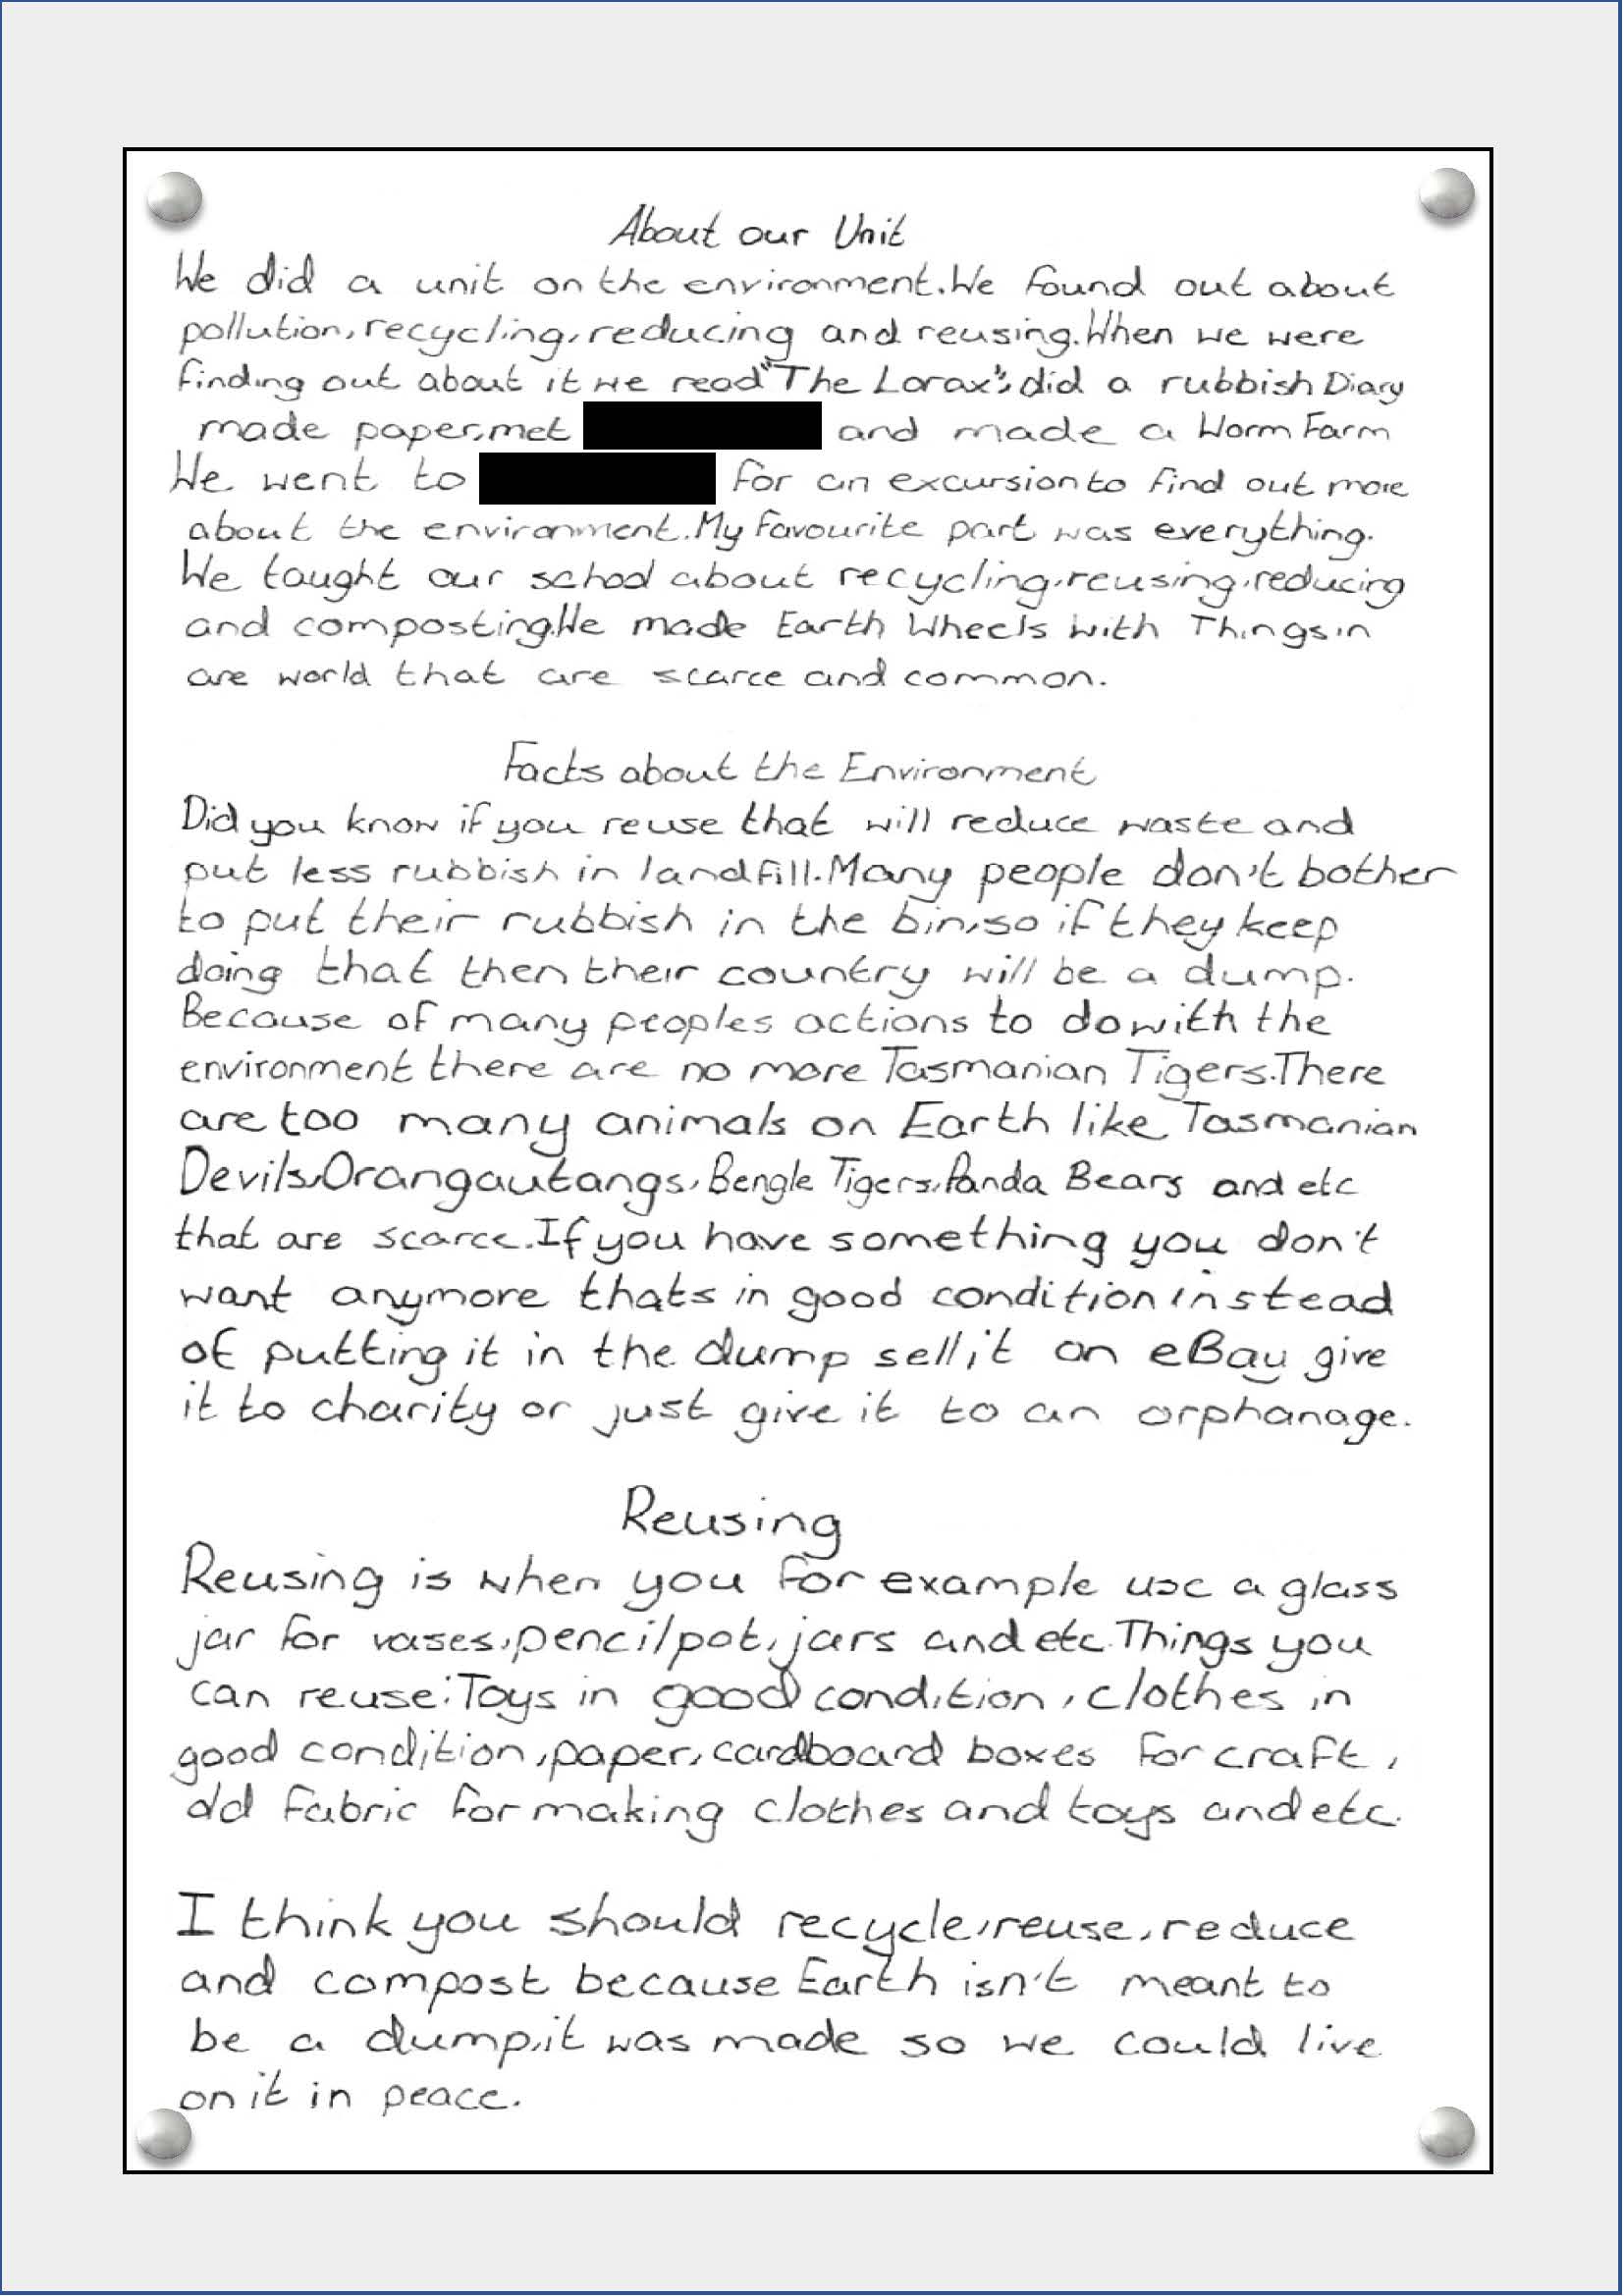 About our Unit
We did a unit on the environment.We found out about
pollution,recycling,reducing and reusing.When we were
finding out about it we read "The Lorax",did a rubbish Diary
made paper,met and made a Worm Farm
We went to for an excursion to find out more
about the environment.My favourite part was everything.
We taught our school about recycling,reusing,reducing
and composting.We made Earth Wheels with Things in
are world that are scarce and common.
Facts about the Environment
Did you know if you reuse that will reduce waste and
put less rubbish in landfill.Many people don't bother
to put their rubbish in the bin,so if they keep
doing that then their country will be a dump.
Because of many peoples actions to do with the
environment there are no more Tasmanian Tigers.There
are too many animals on Earth like Tasmanian
Devils,Orangautangs,Bengle Tigers,Panda Bears and etc
that are scarce.If you have something you don't
want anymore thats in good condition instead
of putting it in the dump sell it on eBay give
it to charity or just give it to an orphanage.
Reusing
Reusing is when you for example use a glass
jar for vases,pencil pot,jars and etc.Things you
can reuse:Toys in good condition,clothes in
good condition,paper,cardboard boxes for craft,
old fabric for making clothes and toys and etc.
I think you should recycle,reuse,reduce
and compost because Earth isn't meant to
be a dump,it was made so we could live
on it in peace.